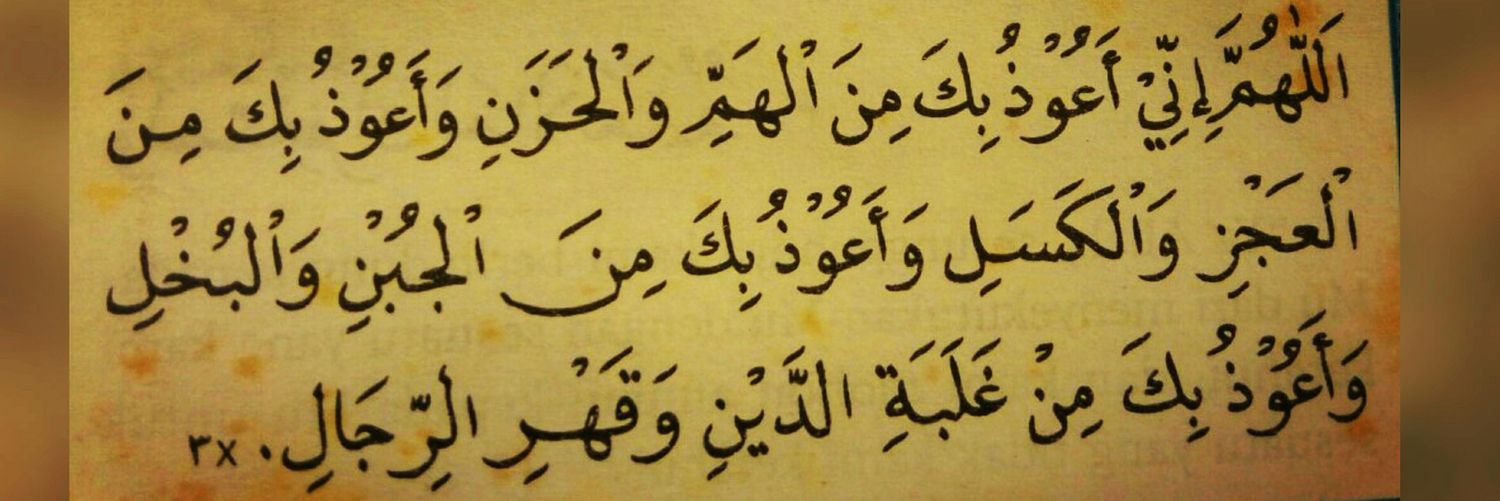 اَللّٰهُمَّ إِنِّيْ أَعُوْذُ بِكَ مِنَ ٱلْهَمِّ وَٱلْحَزَنِ وَأَعُوْذُ بِكَ مِنَ
ٱلْعَجْزِ وَٱلْكَسَلِ وَأَعُوْذُ بِكَ مِنَ ٱلْجُبْنِ وَٱلْبُخْلِ
وَأَعُوْذُ بِكَ مِنْ غَلَبَةِ الدَّيْنِ وَقَهْرِ الرِّجَالِ. ٣x